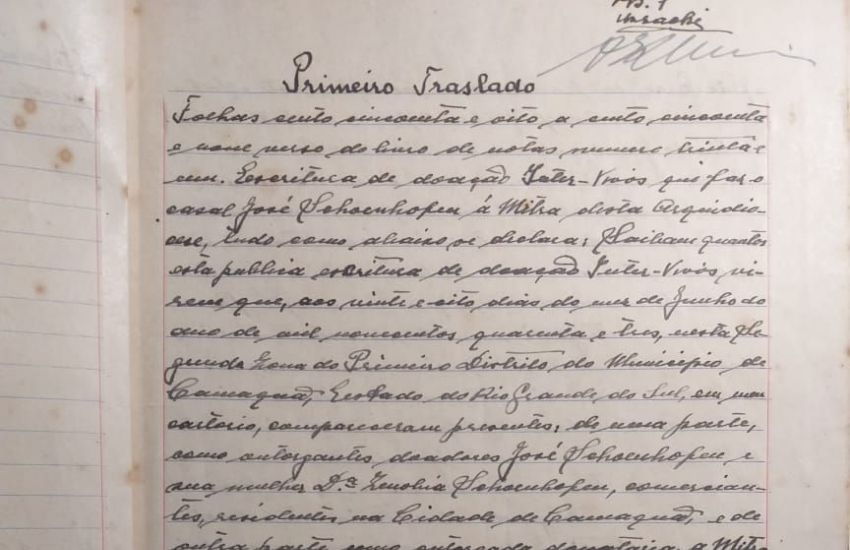 Primeiro Traslado
Folhas cento cincoenta e oito a cento cincoenta
e nove verso do livro de notas numero trinta e
um. Escritura de doação Inter-Vivos que faz o
casal José Schoenhofen á Mitra desta Arquidio-
cese, tudo como abaixo se declara: Saibam quantos
esta publica escritura de doação Inter-Vivos vi-
rem que, aos vinte e oito dias do mes de Junho do
ano de mil novecentos quarenta e tres, nesta Se-
gunda Zona do Primeiro Distrito do Municipio de
Camaquã, Estado do Rio Grande do Sul, em meu
cartorio, compareceram presentes, de uma parte,
como outorgantes doadores José Schoenhofen e
sua mulher D.ª Zenobia Schoenhofen, comercian-
tes, residentes na Cidade de Camaquã, e de
outra parte como outorgada donataria, a Mitra